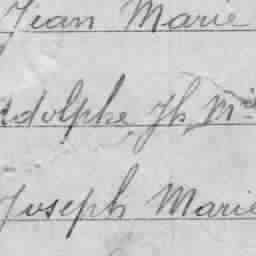 Jean Marie
Adolphe Jh Mie
Joseph Marie